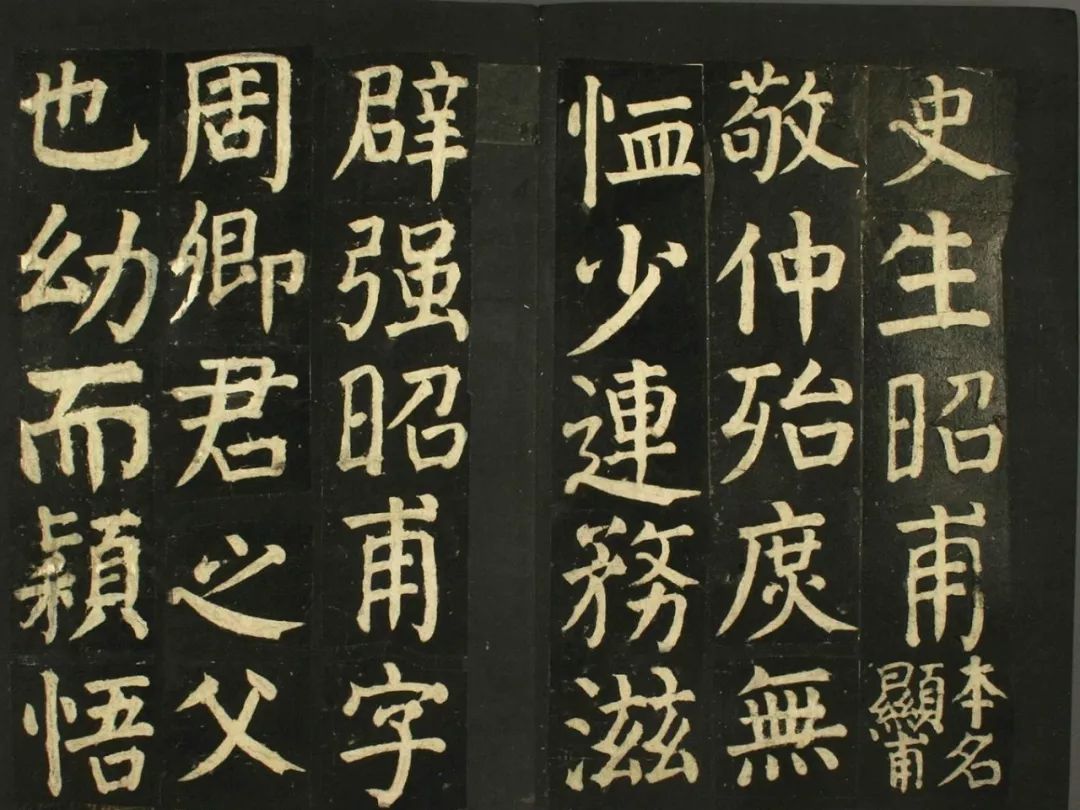 史生昭甫本名顯甫
敬仲殆庶無
恤少連務滋
辟强昭甫字
周卿君之父
也幼而穎悟